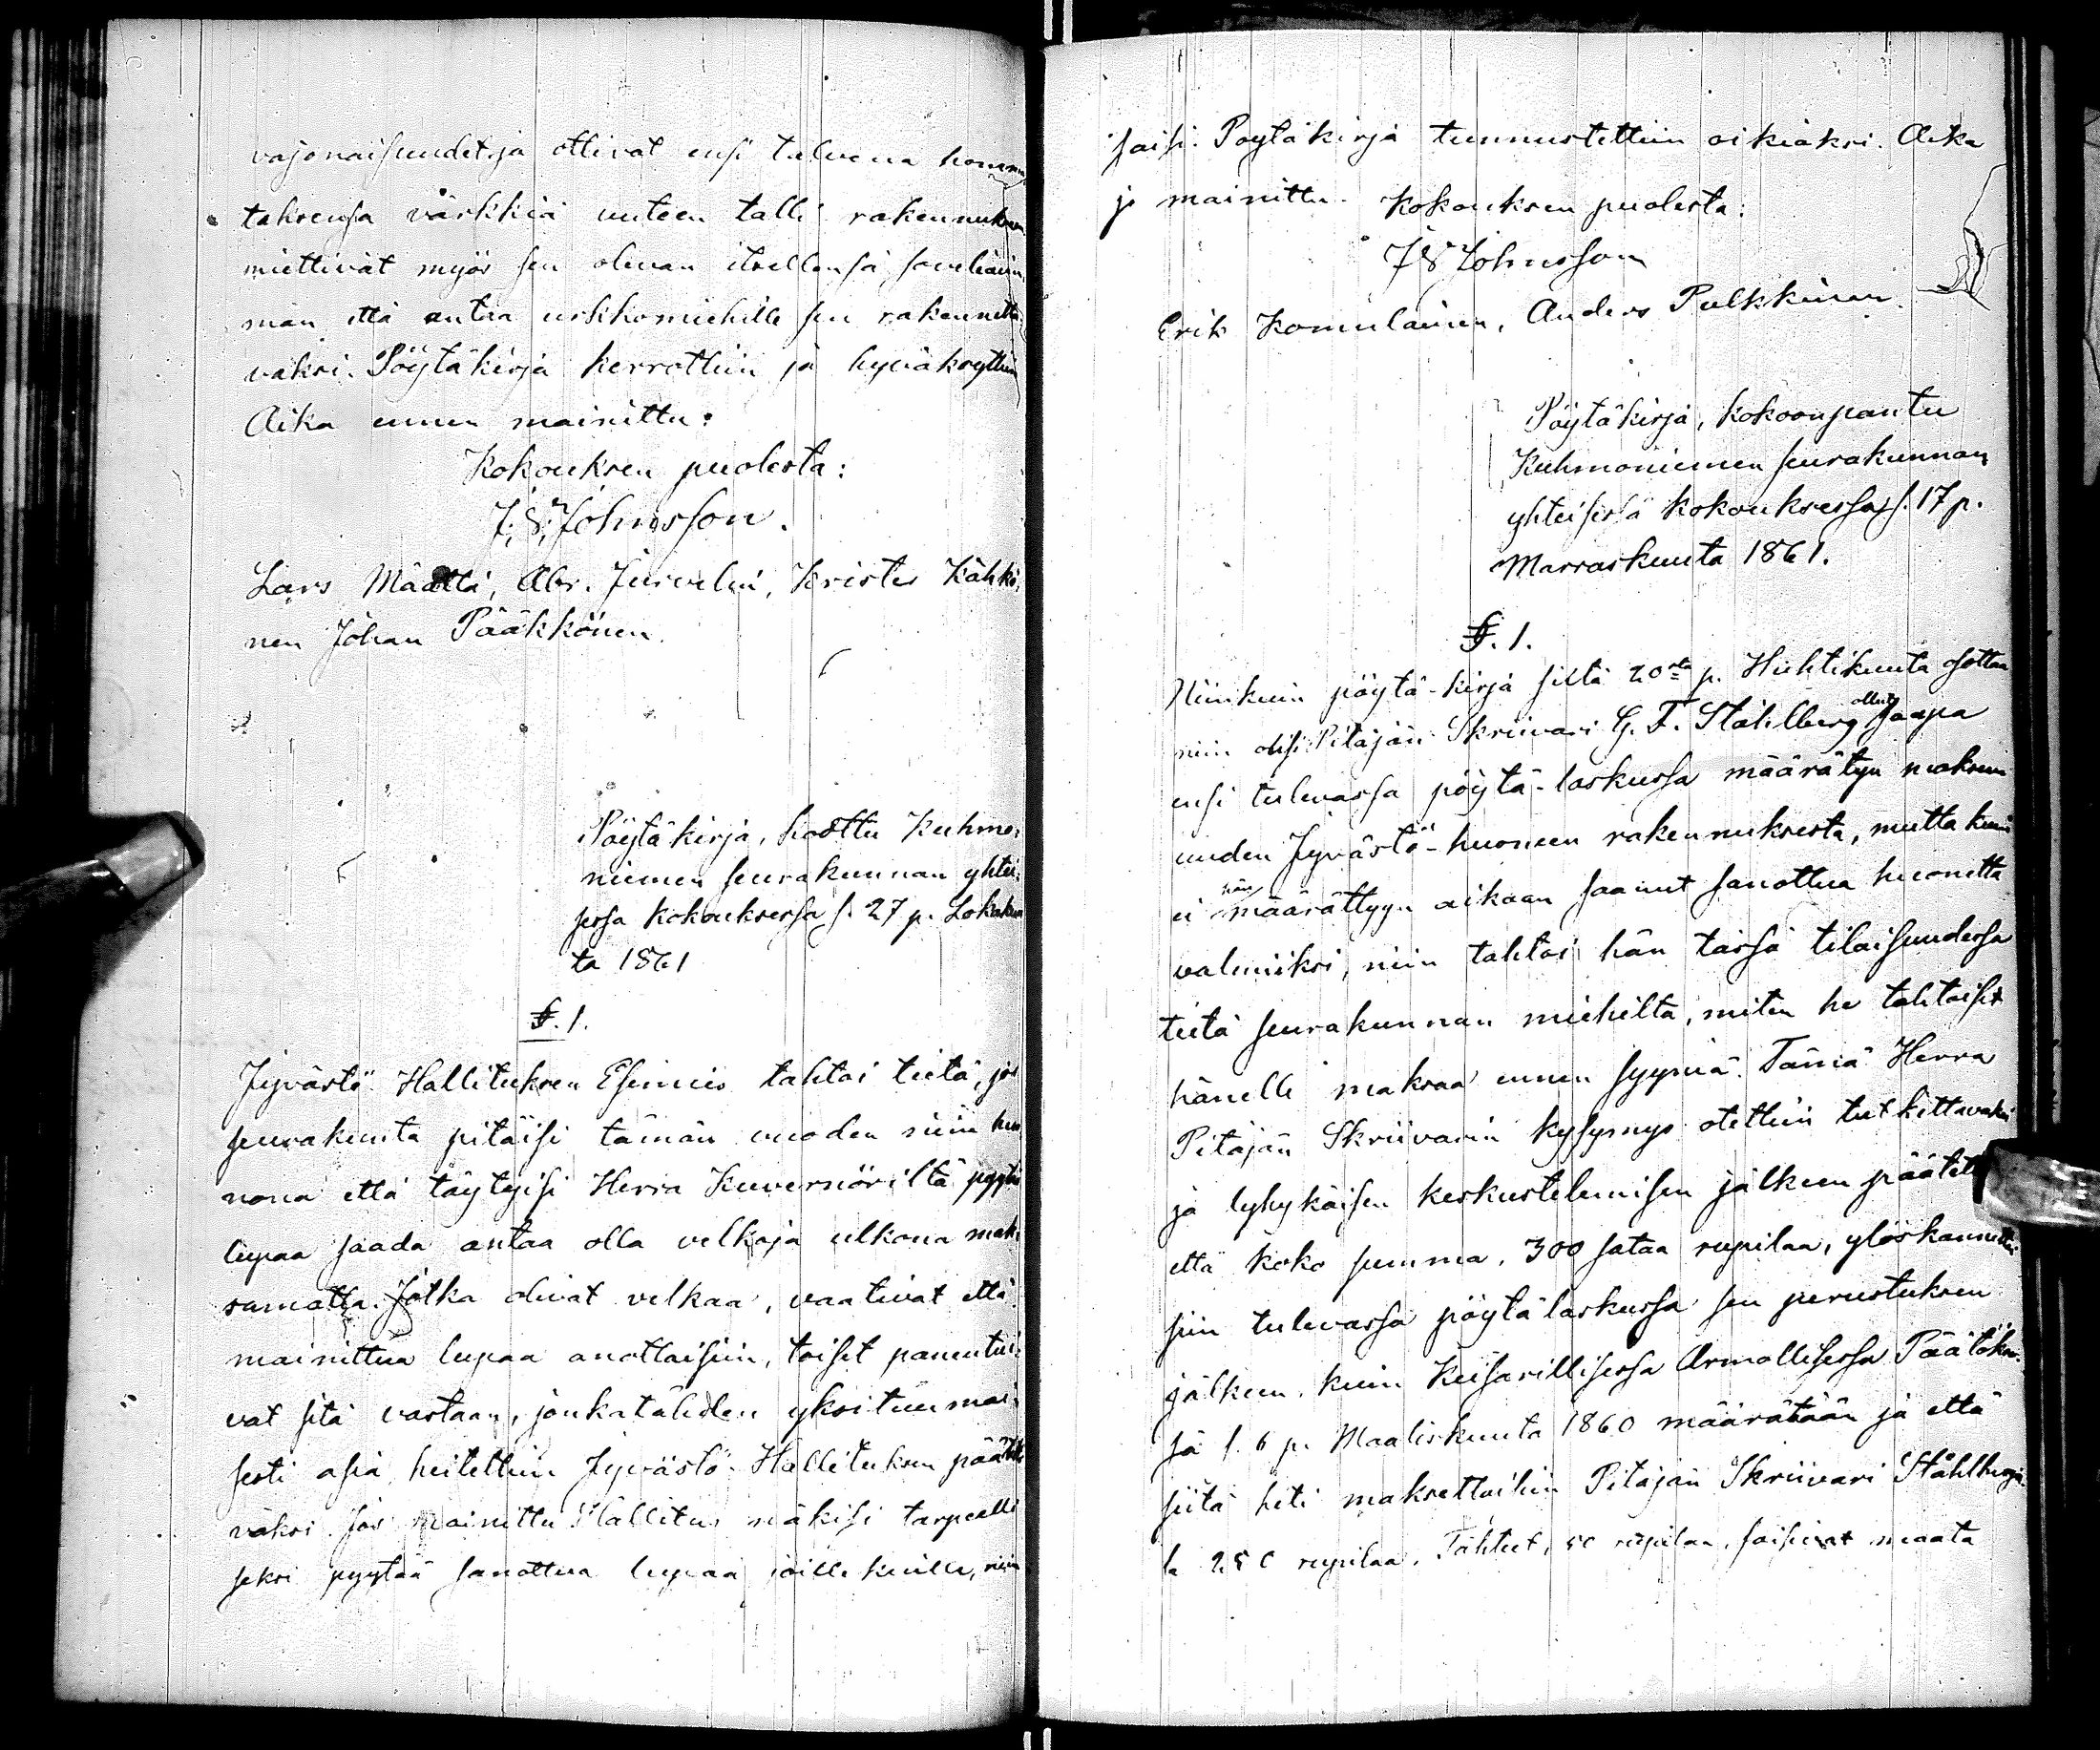 vajonaisuudet, ja ottivat ensi talvena homma
taksensa värkkiä uuteen talli rakennukseen
miettivät myös sen olevan itsellensä soveliaim,
man että antaa urkkomiehille sen rakennetta,
vaksi. Pöytäkirja kerrottiin ja hyväksyttiin
Aika ennen mainittu:
Kokouksen puolesta:
J. S. Johnsson.
Lars Määttä, Abr. Juvelin, Krister Kähkö,
nen Johan Pääkkönen.
Pöytäkirja, haottu Kuhmo,
niemen seurakunnan yhtei,
sessa kokouksessa s. 27 p. Lokakuu
ta 1861
§. 1.
Jyvästö Hallituksen Esimies tahtoi tietä, jos
seurakunta pitäisi tämän vuoden niin huo
nona että täytyisi Herra Kuvernöriltä pyytä
lupaa saada antaa olla velkoja ulkona mak,
samatta. Jotka olivat velkaa, vaativat että
mainittua lupaa anottaisiin, toiset panentui,
vat sitä vastaan, jonkatähden yksituumai,
sesti asia heitettiin Jyvästö Hallituksen päätettä
väksi. Jos mainittu Hallitus näkisi tarpeelli
seksi pyytää sanottua lupaa joillekuille, niin
saisi. Pöytäkirja tunnustettiin oikiaksi. Aika
jo mainittu. Kokouksen puolesta:
J S Johnsson
Erik Komulainen, Anders Pulkkinen.
Pöytäkirja, kokoonpantu
Kuhmoniemen seurakunnan
yhteisessä kokouksessa s. 17 p.
Marraskuuta 1861.
§. 1.
Niinkuin pöytä-kirja siltä 20nta p. Huhtikuuta osottaa
niin olisi Pitäjän Skriivari G. F. Ståhlberg ollut saapa
ensi tulevassa pöytä-laskussa määrätyn maksun
uuden Jyvästö-huoneen rakennuksesta, mutta kuin
ei hän määrättyyn aikaan saanut sanottua huonetta
valmiiksi, niin tahtoi hän tässä tilaisuudessa
tietä seurakunnan miehiltä, miten he tahtoisit
hänelle maksaa ennen syyniä. Tämä Herra
Pitäjän Skriivarin kysymys otettiin tutkittavaksi
ja lyhykäisen keskustelemisen jälkeen päätett
että koko summa, 300 sataa rupilaa, ylöskannettai
siin tulevassa pöytälaskussa sen perustuksen
jälkeen, kuin Keisarillisessa Armollisessa Päätökse,
sä s. 6 p. Maaliskuuta 1860 määrätään ja että
siitä heti maksettaisiin Pitäjän Skriivari Ståhlbergi
le 250 rupilaa. Tähteet, 50 rupilaa, saisivat maata